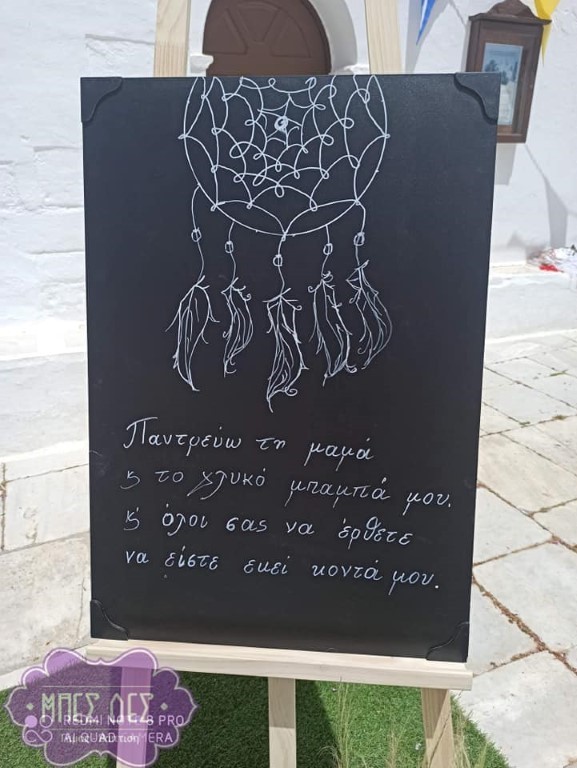 Παντρεύω τη μαμά
κ το γλυκό μπαμπά μου.
κ όλοι σας να έρθετε
να είστε εκεί κοντά μου.
ΜΠΕΣ ΔΕΣ
REDMI NOTE 8 PRO
AI QUAD CAMERA